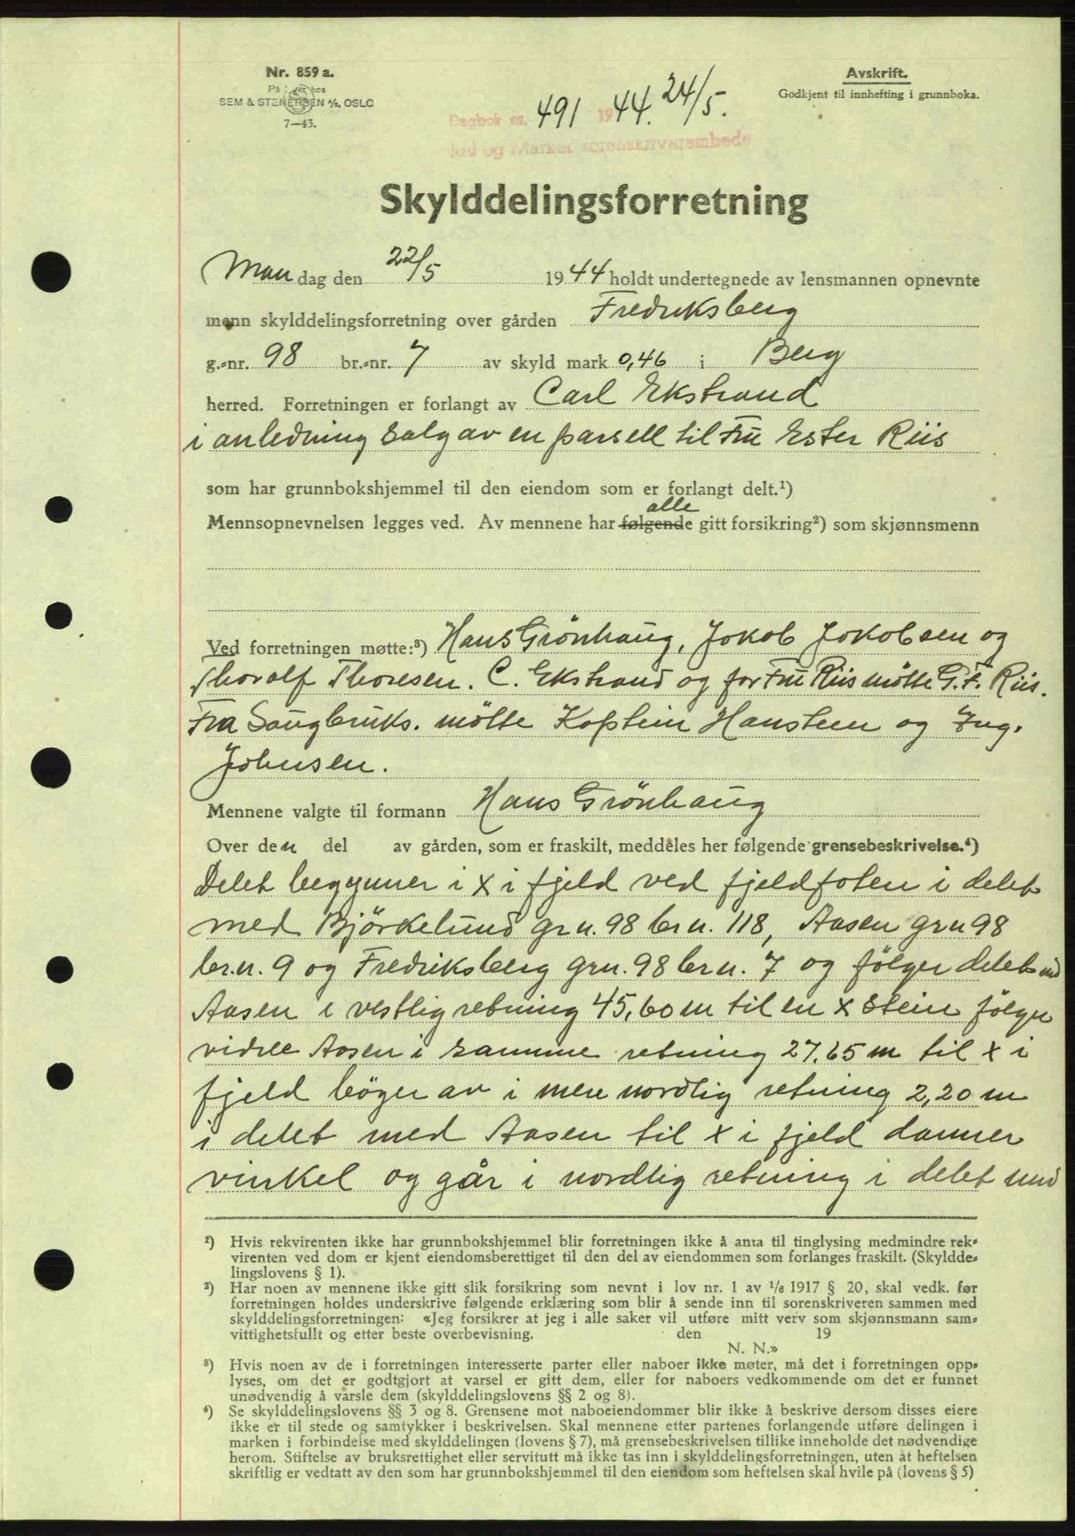 Nr. 859 a.
På lager hos
SEM & STENERSEN A/S, OSLO
7—43.
Avskrift.
Godkjent til innhefting i grunnboka.
Dagbok nr. 491 1944. 24/5.
Idd og Marker sorenskriverembede
Skylddelingsforretning
Mandag den 22/5 1944 holdt undertegnede av lensmannen opnevnte
menn skylddelingsforretning over gården Fredriksberg
g.-nr. 98 br.-nr. 7 av skyld mark 0,46 i Berg
herred. Forretningen er forlangt av Carl Ekstrand
i anledning salg av en parsell til Fru Ester Riis
som har grunnbokshjemmel til den eiendom som er forlangt delt.¹)
alle
Mennsopnevnelsen legges ved. Av mennene har følgende gitt forsikring²) som skjønnsmenn
Ved forretningen møtte:³) Hans Grönhaug, Jokob Jokobsen og
Thoralf Thoresen. C. Ekstrand og for Fru Riis mötte G.F. Riis.
Fra Saugbruks. mötte Kaptein Hansteen og Ing.
Johnsen.
Mennene valgte til formann Hans Grönhaug
Over den del av gården, som er fraskilt, meddeles her følgende grensebeskrivelse.⁴)
Delet begynner i X i fjeld ved fjeldfoten i delet
med Björkelund gr n. 98 br n. 118, Aasen gr n 98
br. n. 9 og Fredriksberg grn. 98 br n. 7 og fölger delet md
Aasen i vestlig retning 45,60 m til en X Stein fölger
videre Aasen i samme retning 27,65 m til X i
fjeld böyer av i mere nordlig retning 2,20 m
i delet med Aasen til X i fjeld danner
vinkel og går i nordlig retning i delet med
¹) Hvis rekvirenten ikke har grunnbokshjemmel blir forretningen ikke å anta til tinglysing medmindre rek-
virenten ved dom er kjent eiendomsberettiget til den del av eiendommen som forlanges fraskilt. (Skyldde-
lingslovens § 1).
²) Har noen av mennene ikke gitt slik forsikring som nevnt i lov nr. 1 av 1/6 1917 § 20, skal vedk. før
forretningen holdes underskrive følgende erklæring som blir å sende inn til sorenskriveren sammen med
skylddelingsforretningen: «Jeg forsikrer at jeg i alle saker vil utføre mitt verv som skjønnsmann sam-
vittighetsfullt og etter beste overbevisning. den 19
N. N.»
³) Hvis noen av de i forretningen interesserte parter eller naboer ikke møter, må det i forretningen opp-
lyses, om det er godtgjort at varsel er gitt dem, eller for naboers vedkommende om det er funnet
unødvendig å varsle dem (skylddelingslovens §§ 2 og 8).
⁴) Se skylddelingslovens §§ 3 og 8. Grensene mot naboeiendommer blir ikke å beskrive dersom disses eiere
ikke er til stede og samtykker i beskrivelsen. Skal mennene etter partenes forlangende utføre delingen i
marken i forbindelse med skylddelingen (lovens § 7), må grensebeskrivelsen tillike inneholde det nødvendige
herom. Stiftelse av bruksrettighet eller servitutt må ikke tas inn i skylddelingsforretningen, uten at heftelsen
skriftlig er vedtatt av den som har grunnbokshjemmel til den eiendom som heftelsen skal hvile på (lovens § 5)